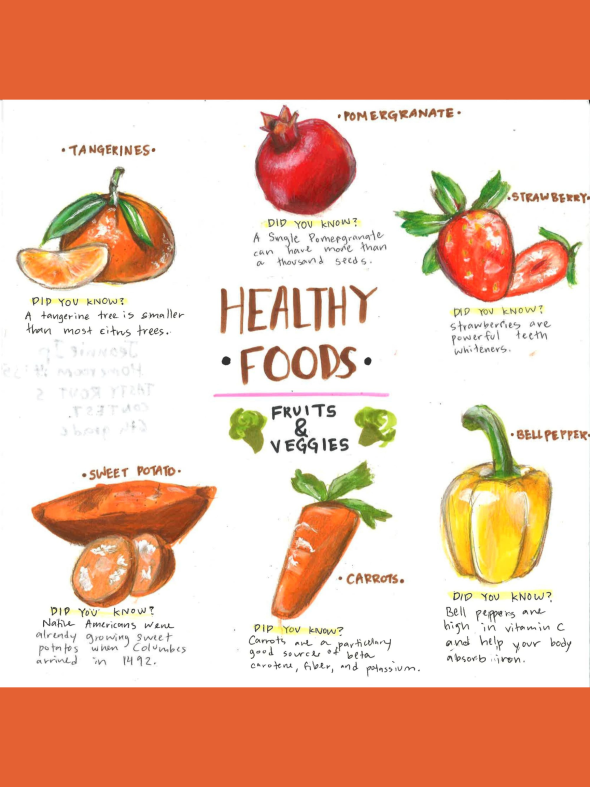 •POMERGRANATE•
DID YOU KNOW?
A Single Pomegranate
can have more than
a thousand seeds.
•TANGERINES•
DID YOU KNOW?
A tangerine tree is smaller
than most citrus trees.
•STRAWBERRY•
DID YOU KNOW?
strawberries are
powerful teeth
whiteners.
HEALTHY
•FOODS•
FRUITS
&
VEGGIES
•SWEET POTATO•
DID YOU KNOW?
Native Americans were
already growing sweet
potatos when Columbus
arrived in 1492.
•CARROTS•
DID YOU KNOW?
Carrots are a particulary
good source of beta
carotene, fiber, and potassium.
•BELLPEPPER•
DID YOU KNOW?
Bell peppers are
high in vitamin C
and help your body
absorb iron.